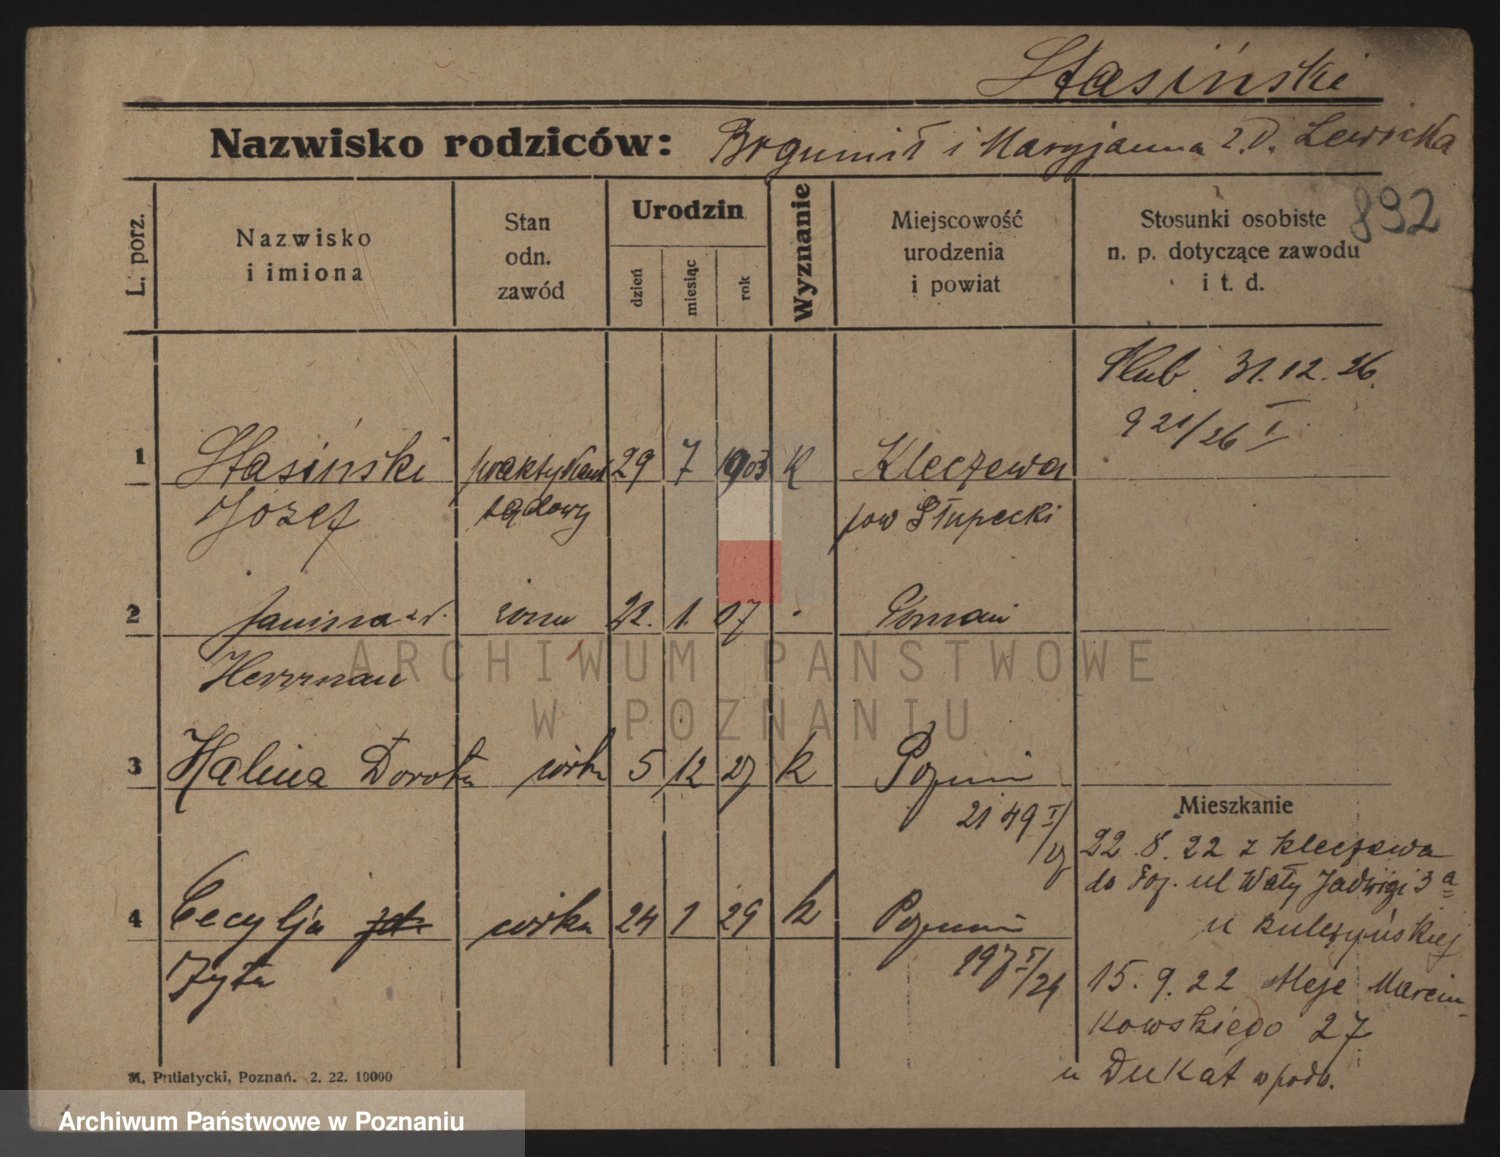 Stasiński
Nazwisko rodziców: Bogumił i Maryjanna z.D. Lewicka
892
L. porz.
Nazwisko
i imiona
Stan
odn.
zawód
Urodzin
dzień
miesiąc
rok
Wyznanie
Miejscowość
urodzenia
i powiat
Stosunki osobiste
n. p. dotyczące zawodu
i t. d.
Ślub 31.12.26.
921/26 I
1 Stasiński praktykant 29 7 1903 K Kleczewa
Józef sądowy pow Słupecki
2 Janina z d. żona 22. 1. 07 Poznań
Herrman
3 Halina Dorota córka 5 12 27 k Poznań
2149 I/27
Mieszkanie
22.8.22 z Kleczewa
do Poz. ul Wały Jadwigi 3a
4 Cecylja córka 24 1 29 k Poznań
u Kulczyńskiej
Zyta 197 I/29
15.9.22 Aleje Marcin-
kowskiego 27
u Dukat w podw.
M. Putiatycki, Poznań. 2. 22. 10000
ARCHIWUM PAŃSTWOWE
W POZNANIU
Archiwum Państwowe w Poznaniu